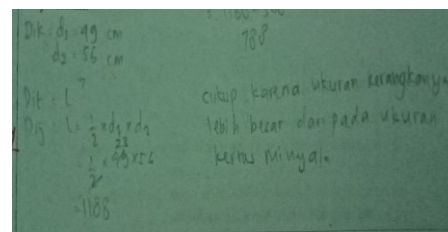 Dik = d₁ = 49 cm
d₂ = 56 cm
Dit = L ?
Dij = L = 1/2 x d₁ x d₂
28
= 1/2 x 49 x 56
= 1188
788
cukup, karena ukuran kerangkanya
lebih besar daripada ukuran
kertas minyak.